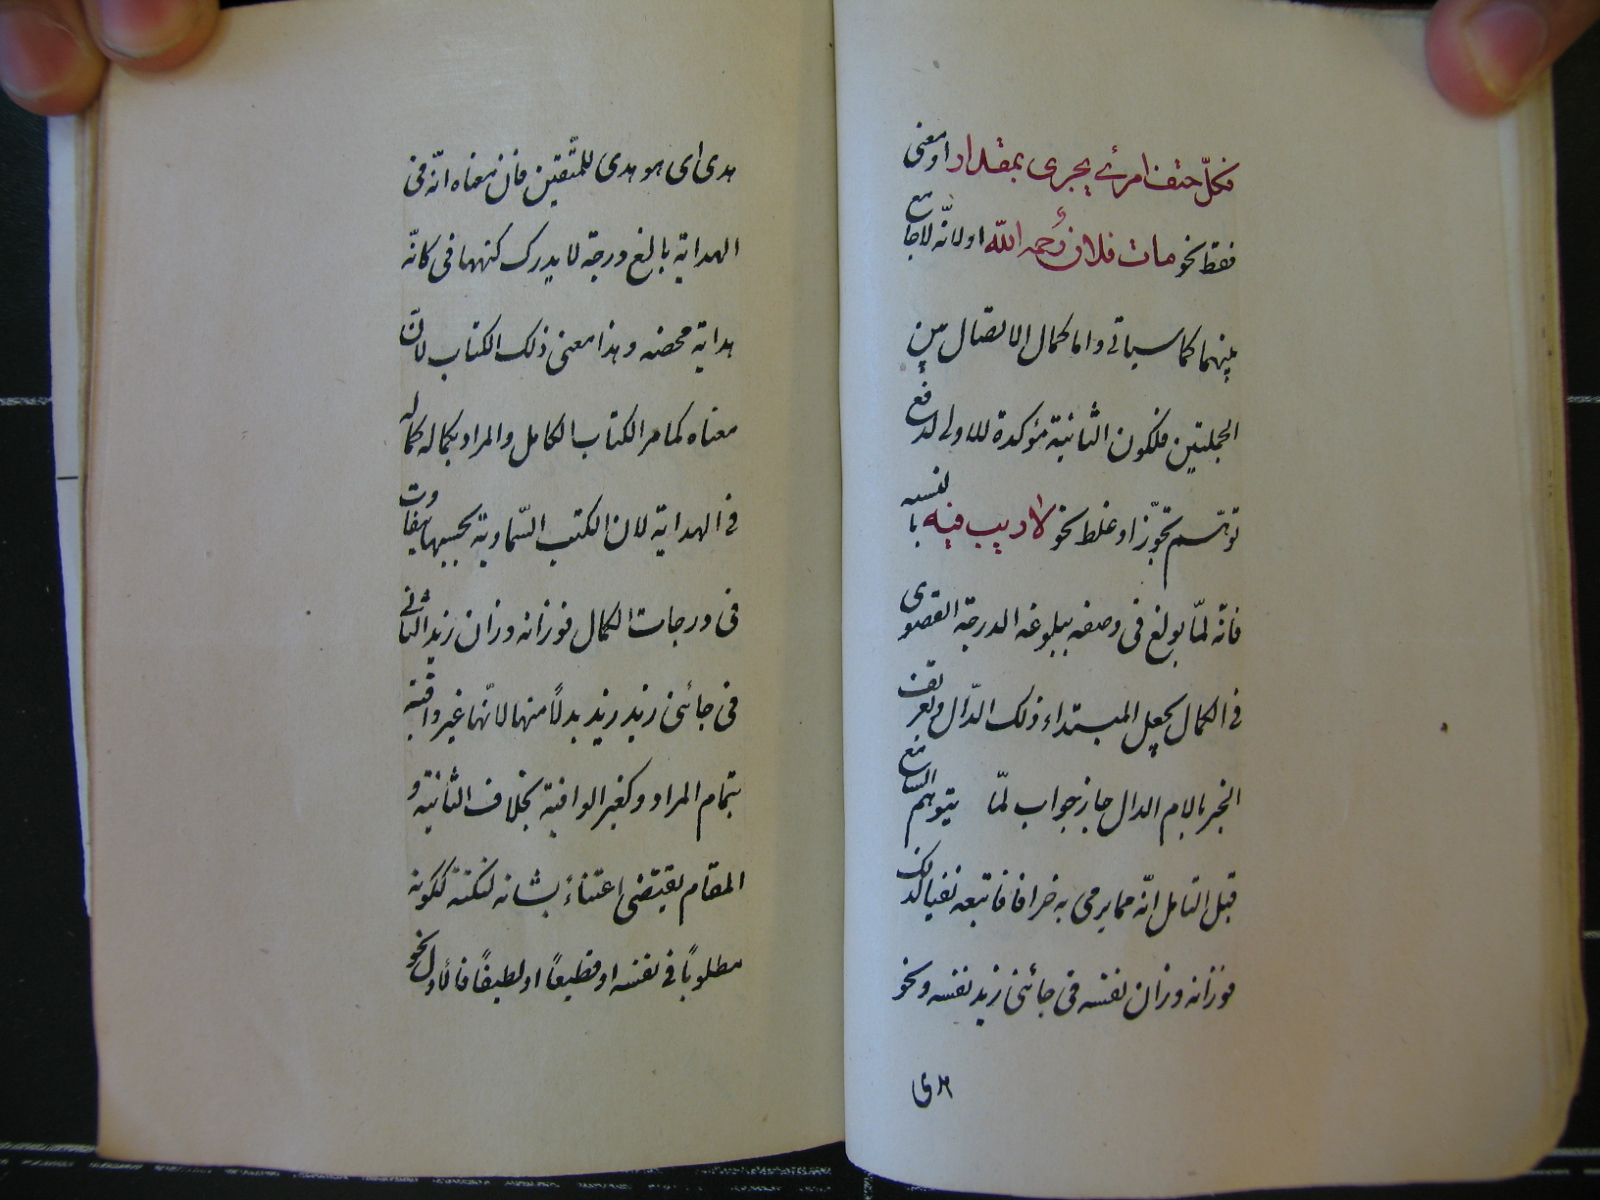 فكلّ حتف امرئ يجرى بمقدار او معنى
فقط نحو مات فلان رحمه الله او لانّه لا جامع
بينهما كما سياتى واما كمال الاتصال بين
الجملتين فلكون الثانية مؤكدة للاولى لدفع
توهّم تجوّز او غلط نحو لا ريب فيه بالنسبه
فانّه لمّا بولغ فى وصفه ببلوغه الدرجة القصوى
فى الكمال بجعل المبتداء ذلك الدّال وتعريف
الخبر بالام الدال جاز جواب لمّا يتوهم السامع
قبل التامل انّه مما يرمى به خرافا فاتبعه نفيا لذلك
فوزانه وزان نفسه فى جائنى زيد نفسه ونحو
هدى
هدى اى هو هدى للمتّقين فان معناه انّه فى
الهداية بالغ درجة لا يدرك كنهها فى كانّه
هداية محضه وهذا معنى ذلك الكتاب لانّ
معناه كما مر الكتاب الكامل والمراد بكماله كماله
فى الهداية لان الكتب السّماوية بحسبها يتفاوت
فى درجات الكمال فوزانه وزان زيد الثانى
فى جائنى زيد زيد بدلاً منها لانّها غير وافية
بتمام المراد وكغير الوافية بخلاف الثانية و
المقام يقتضى اعتناءً بشانه لنكتة ككونه
مطلوباً فى نفسه او فظيعاً او لطيفاً فالاول نحو